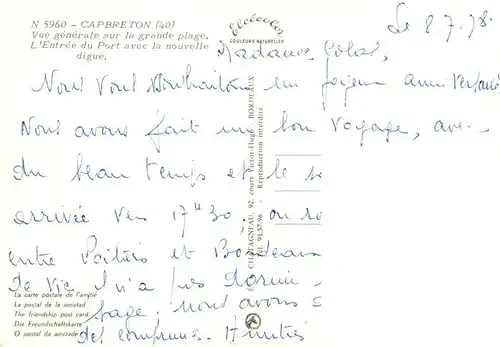 N 5960 - CAPBRETON (40)
Vue générale sur la grande plage.
L'Entrée du Port avec la nouvelle
digue.
elcécolor
COULEURS NATURELLES
Le 8.7.78.
Madame
Nous vous souhaitons un joyeux anniversaire
Nous avons fait un bon voyage, avec
du beau temps et le
arrivée vers 17H30, on
entre Poitiers et Bordeaux
de vie. n'a pas dormi
nous avons
des communes. Amitiés
CHATAGNEAU, 92, cours Victor-Hugo BORDEAUX
Tél. 91.57.96 - Reproduction interdite
La carte postale de l'amitié
La postal de la amistad
The friendship post card
Die Freundschaftskarte
O postal da amizade